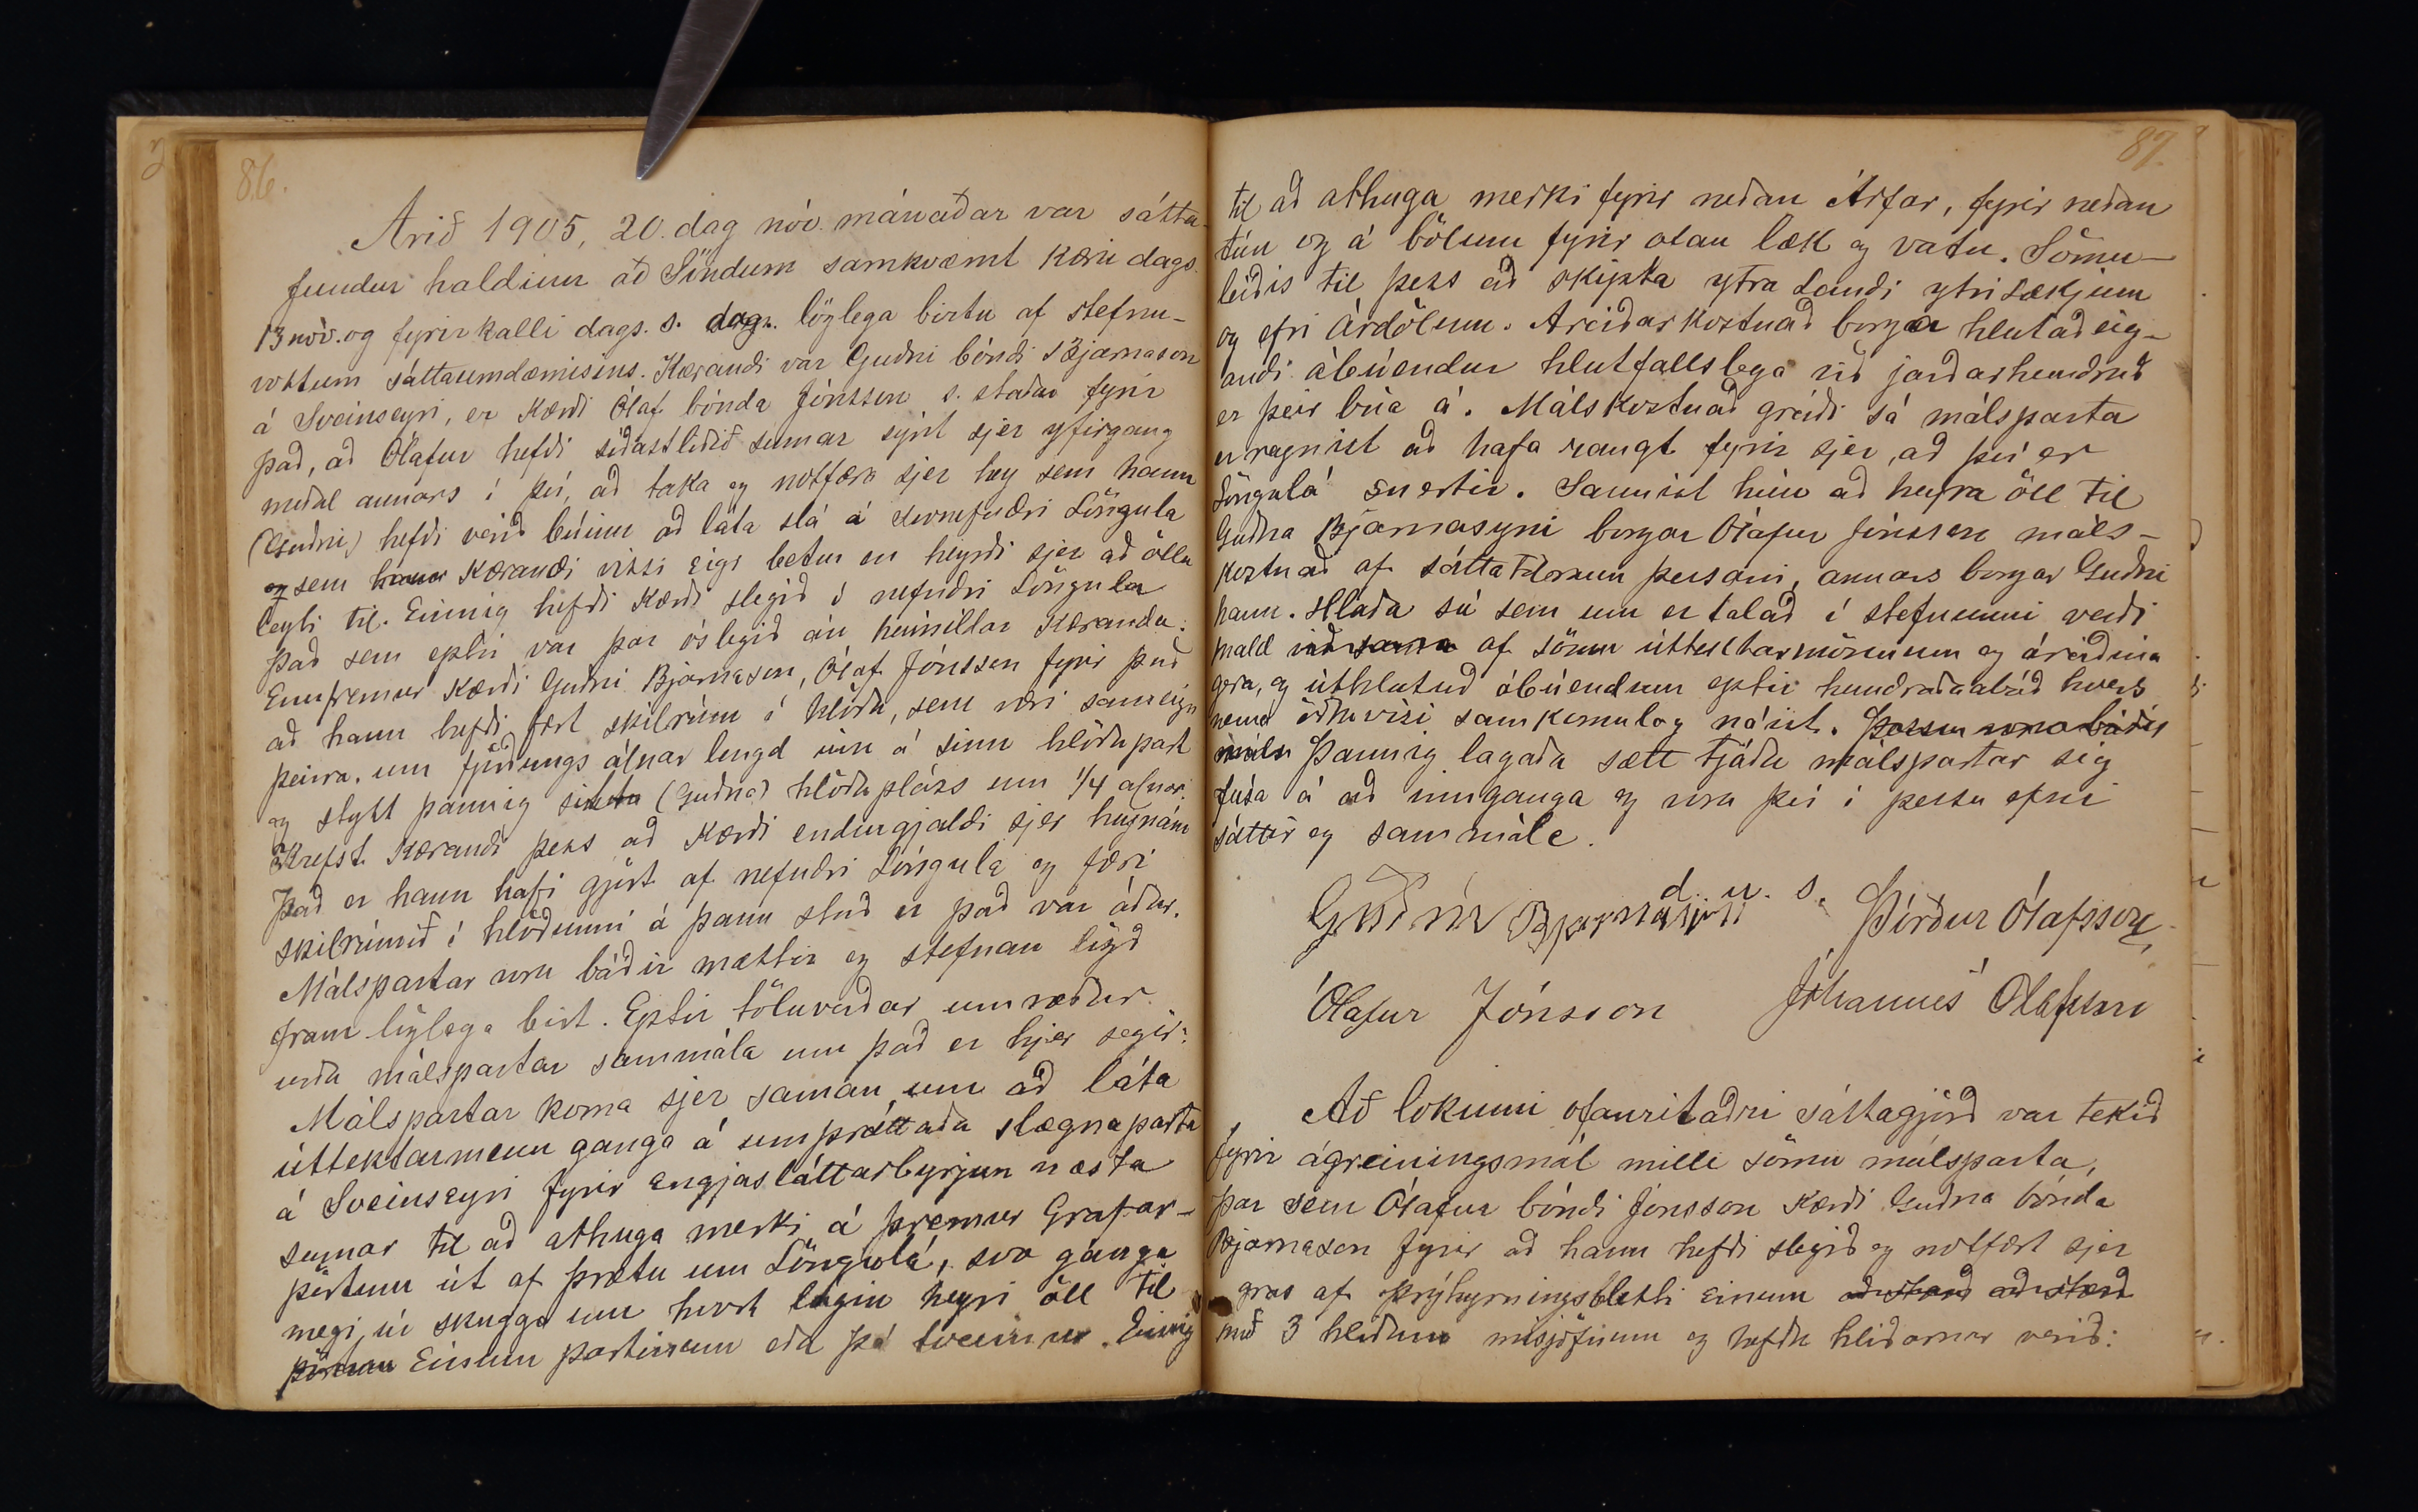 86.
Árið 1905, 20. dag nóv. mánaðar var sátta-
fundur haldinn að Söndum samkvæmt kæru dags.
13 nóv. og fyrirkalli dags. s. dag. löglega birtu af stefnu-
vottum sáttaumdæmisins. Kærandi var Guðni bóndi Bjarnason
á Sveinseyri, er kærði Ólaf bónda Jónsson s. staðar fyrir
það, að Ólafur hefði síðastliðið sumar sýnt sjer yfirgang
meðal annars í því, að taka og notfæra sjer hey sem hann
(Guðni) hefði verið búinn að láta slá á svonefndri Löngulá
og sem hann kærandi vissi eigi betur en heyrði sjer að öllu
leyti til. Einnig hefði kærði slegið í nefndri Löngulá
það sem eptir var þar óslegið án heimildar kæranda.
Ennfremur kærði Guðni Bjarnason, Ólaf Jónsson fyrir það
að hann hefði fært skilrúm í hlöðu, sem væri sameign
þeirra, um fjórðungs álnar lengd inn á sinn hlöðupart
og stytt þannig (Guðna) hlöðupláss um 1/4 alnar.
Krefst kærandi þess að kærði endurgjaldi sjer heynám
það er hann hafi gjört af nefndri Löngulá og færi
skilrúmið í hlöðunni á þann stað er það var áður.
Málspartar voru báðir mættir og stefnan lögð
fram löglega birt. Eptir töluverðar umræður
urðu málspartar sammála um það er hjer segir:
Málspartar koma sjer saman um að láta
úttektarmenn ganga á umþráttaða slægnaparta
á Sveinseyri fyrir engjasláttarbyrjun næsta
sumar til að athuga merki á þremur Grafar-
pörtum út af þrætu um Löngulá, svo ganga
megi úr skugga um hvort lágin heyri öll til
Einum partinum eða þá tveimur. Einnig
87.
til að athuga merki fyrir neðan Árfar, fyrir neðan
tún og á bölum fyrir ofan læk og vatn. Sömu-
leiðis til þess að skipta ytra Landi ytri Lækjum
og efri Árdölum. Áreiðarkostnað borga hlutaðeig-
andi ábúendur hlutfallslega við jarðarhundruð
er þeir búa á. Málskostnað greiði sá málsparta
er reynist að hafa rangt fyrir sjer, að því er
Löngulá snertir. Sannist hún að heyra öll til
Guðna Bjarnasyni borgar Ólafur Jónsson máls-
kostnað af sáttatilraun þessari, annars borgar Guðni
hann. Hlaða sú sem um er talað í stefnunni verði
mæld af sömu úttektarmönnum og áreiðina
gera, og úthlutuð ábúendum eptir hundraðaábúð hvers
nema öðruvísi samkomulag náist.
Þannig lagaða sætt tjáðu málspartar sig
fúsa á að innganga og voru því í þessu efni
sáttir og sammála.
d. u. s.
Guðni Bjarnason Þórður Ólafsson
Ólafur Jónsson Jóhannes Ólafsson
Að lokinni ofanritaðri sáttagjörð var tekið
fyrir ágreiningsmál milli sömu málsparta,
þar sem Ólafur bóndi Jónsson kærði Guðna bónda
Bjarnason fyrir að hann hefði slegið og notfært sjer
gras af þrýhyrningsbletti einum að stærð að stærð
með 3 hliðum misjöfnum og hefðu hliðarnar verið: